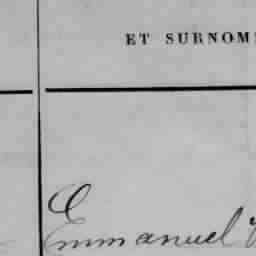 ET SURNOM
Emmanuel